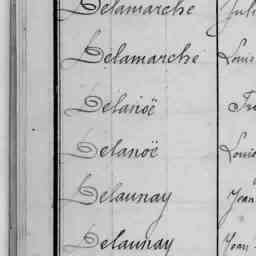 Delamarche Juli
Delamarche Louis
Delanoë Fra
Delanoë Louis
Delaunay Jean
Delaunay Jean